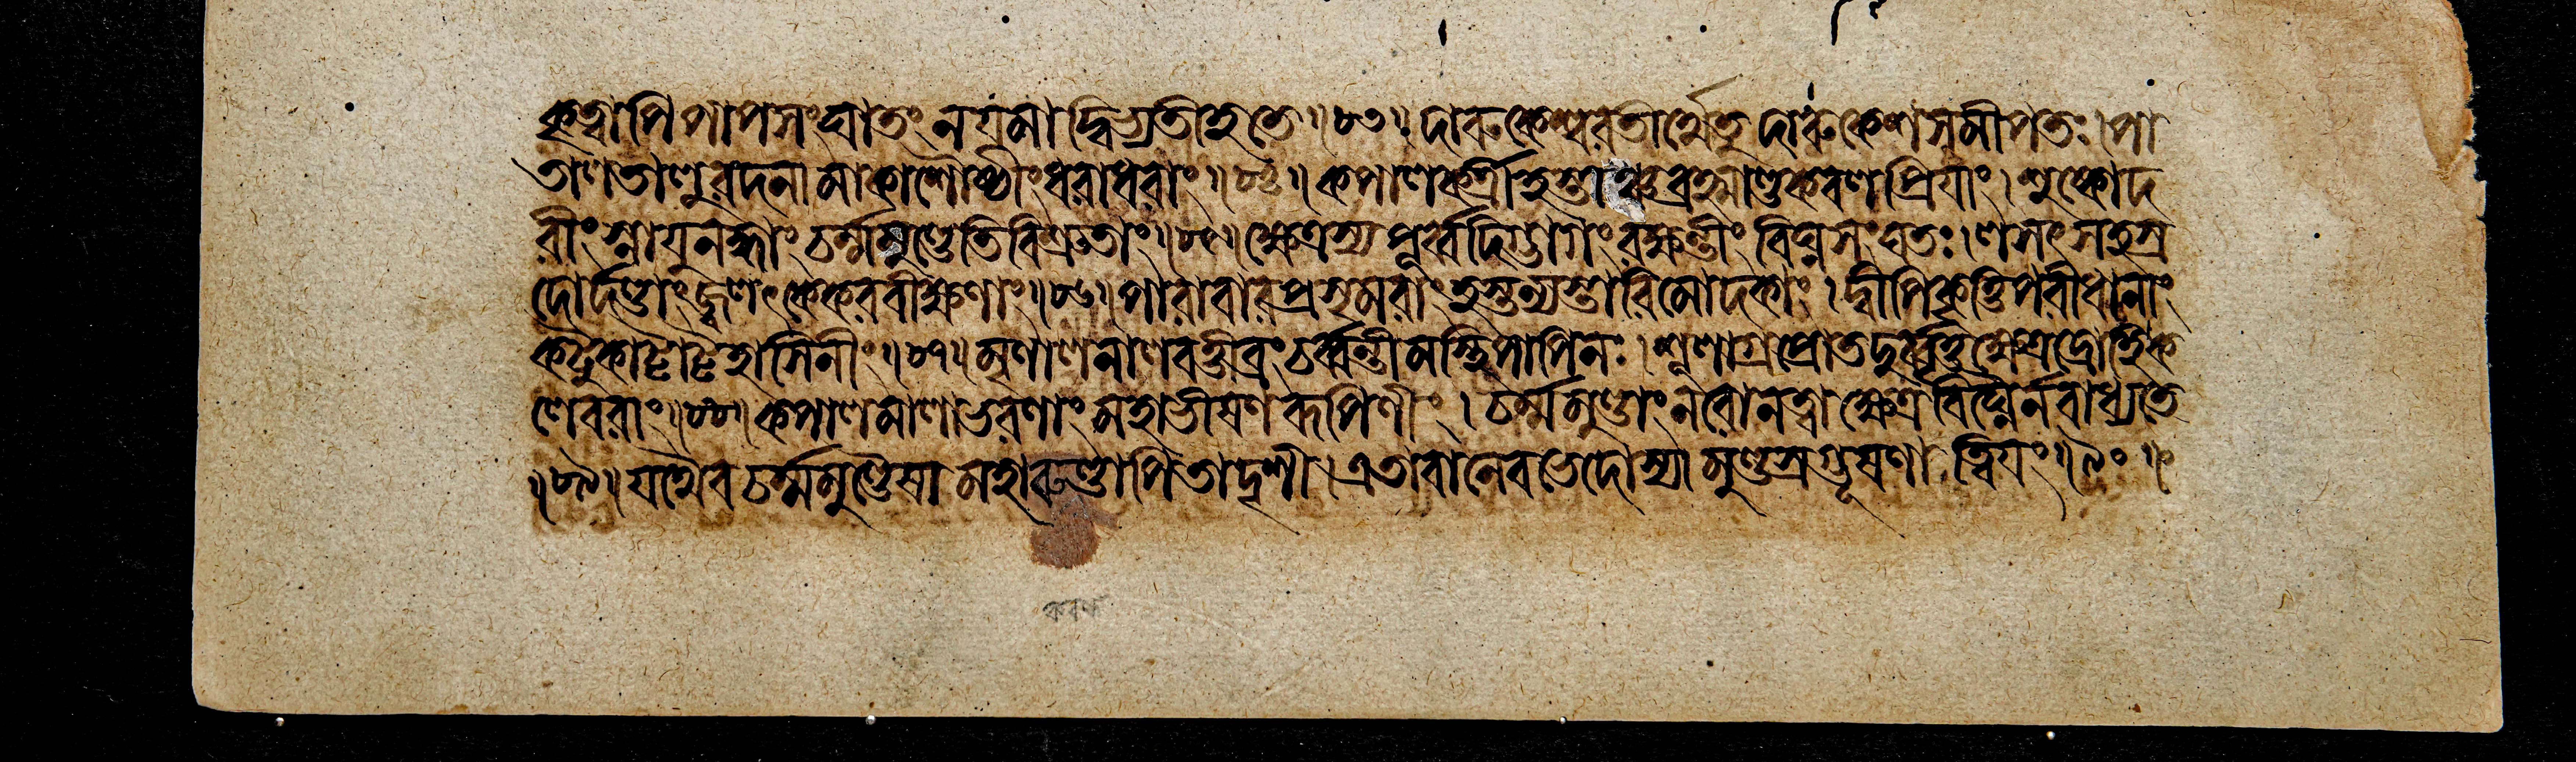 কৃত্বাপি পাপসংঘাতং ন যমাদ্বিভ্যতীহ তে ॥৮৩॥ দারুকেশ্বরতীর্থে তু দারুকেশসমীপতঃ। পা
তালতালুবদনামাকাশৌষ্ঠীং ধরাধরাং॥৮৪॥ কপালকর্ত্রীহস্তাঞ্চ ব্রহ্মাণ্ডকবলপ্রিয়াং। শুষ্কোদ
রীং স্নায়ুনদ্ধাং চর্ম্মমুণ্ডেতি বিশ্রুতাং॥৮৫॥ ক্ষেত্রস্য পূর্ব্বদিগ্ভাগং রক্ষন্তীং বিঘ্নসংঘতঃ। লসৎসহস্র
দোর্দণ্ডাং জ্বলৎকেকরবীক্ষণাং॥৮৬॥ পারাবারপ্রসৃমরাং হস্তন্যস্তারিমোদকাং। দ্বীপিকৃত্তিপরীধানাং
কটুকাট্টাট্টহাসিনীং॥৮৭॥ মৃণালনালবত্তীব্রং চর্ব্বন্তীমস্থিপাপিনঃ। শূলাগ্রপ্রোতদুর্ব্বৃত্তক্ষেত্রদ্রোহিক
লেবরাং॥৮৮॥ কপালমালাভরণাং মহাভীষণরূপিণীং। চর্ম্মমুণ্ডাং নরো নত্বা ক্ষেত্রবিঘ্নৈর্ন বাধ্যতে
॥৮৯॥ যথৈব চর্ম্মমুণ্ডৈষা মহারুণ্ডাপি তাদৃশী। এতাবানেব ভেদোস্যা মুণ্ডস্রগ্ভূষণা ত্বিয়ং॥৯০॥